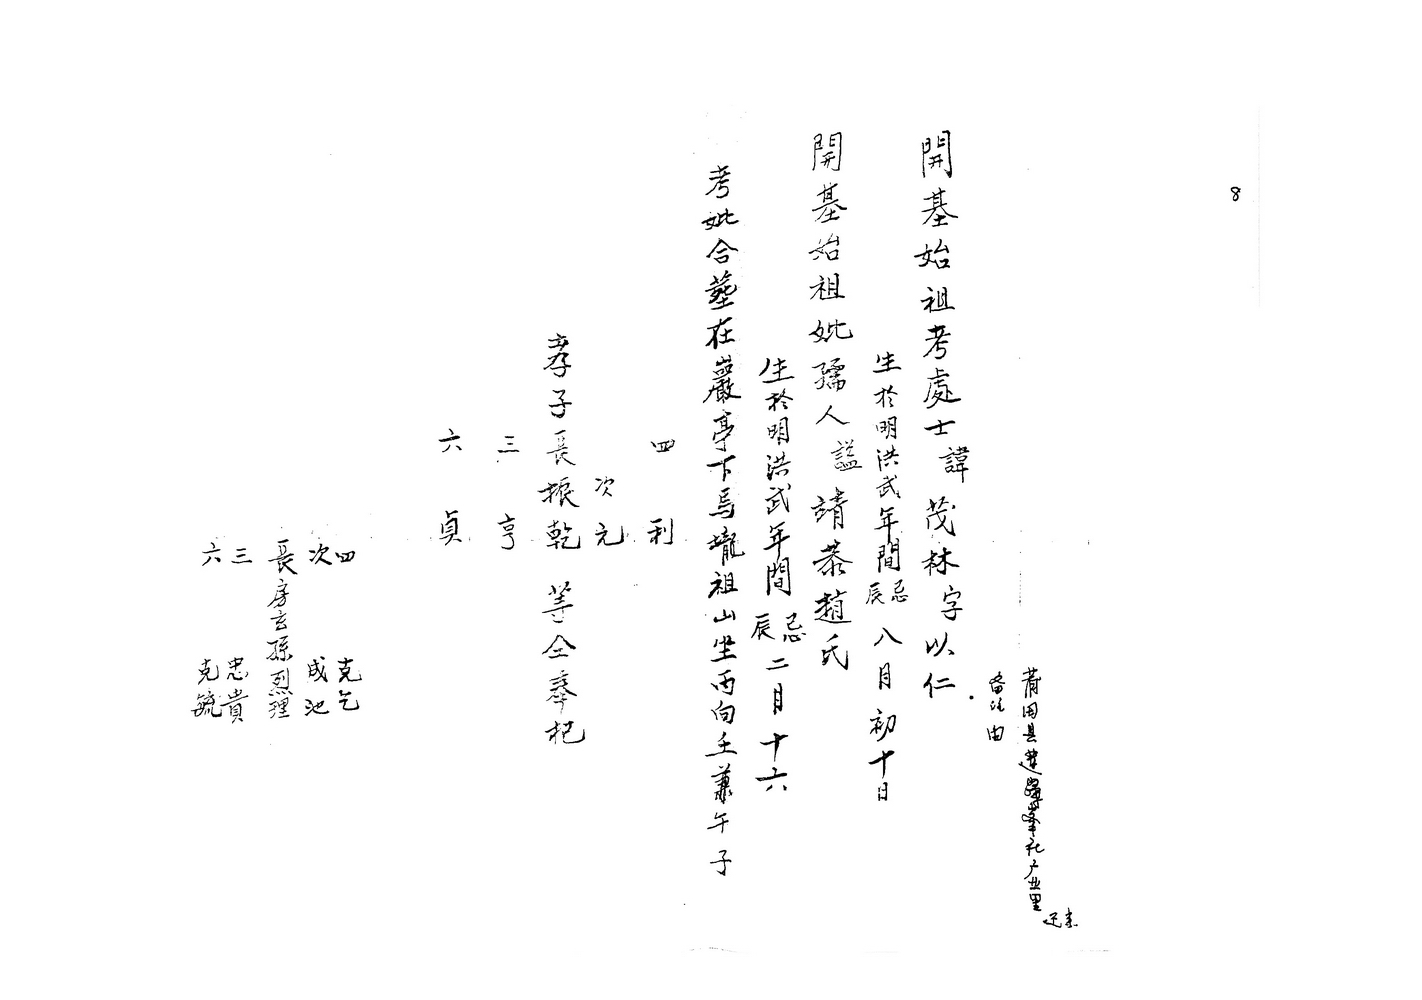 8
莆田县
峯社广业里
迁来
由
開基始祖考處士諱茂林字以仁
生於明洪武年間忌辰八月初十日
開基始祖妣孺人謚靖恭趙氏
生於明洪武年間忌辰二月十六
考妣合塟在巖亭下烏壠祖山坐丙向壬兼午子
四 利
次 元
孝子長振乾等仝奉祀
三 亨
六 貞
四 克乞
次 成池
長房玄孫烈理
三 忠貴
六 克毓